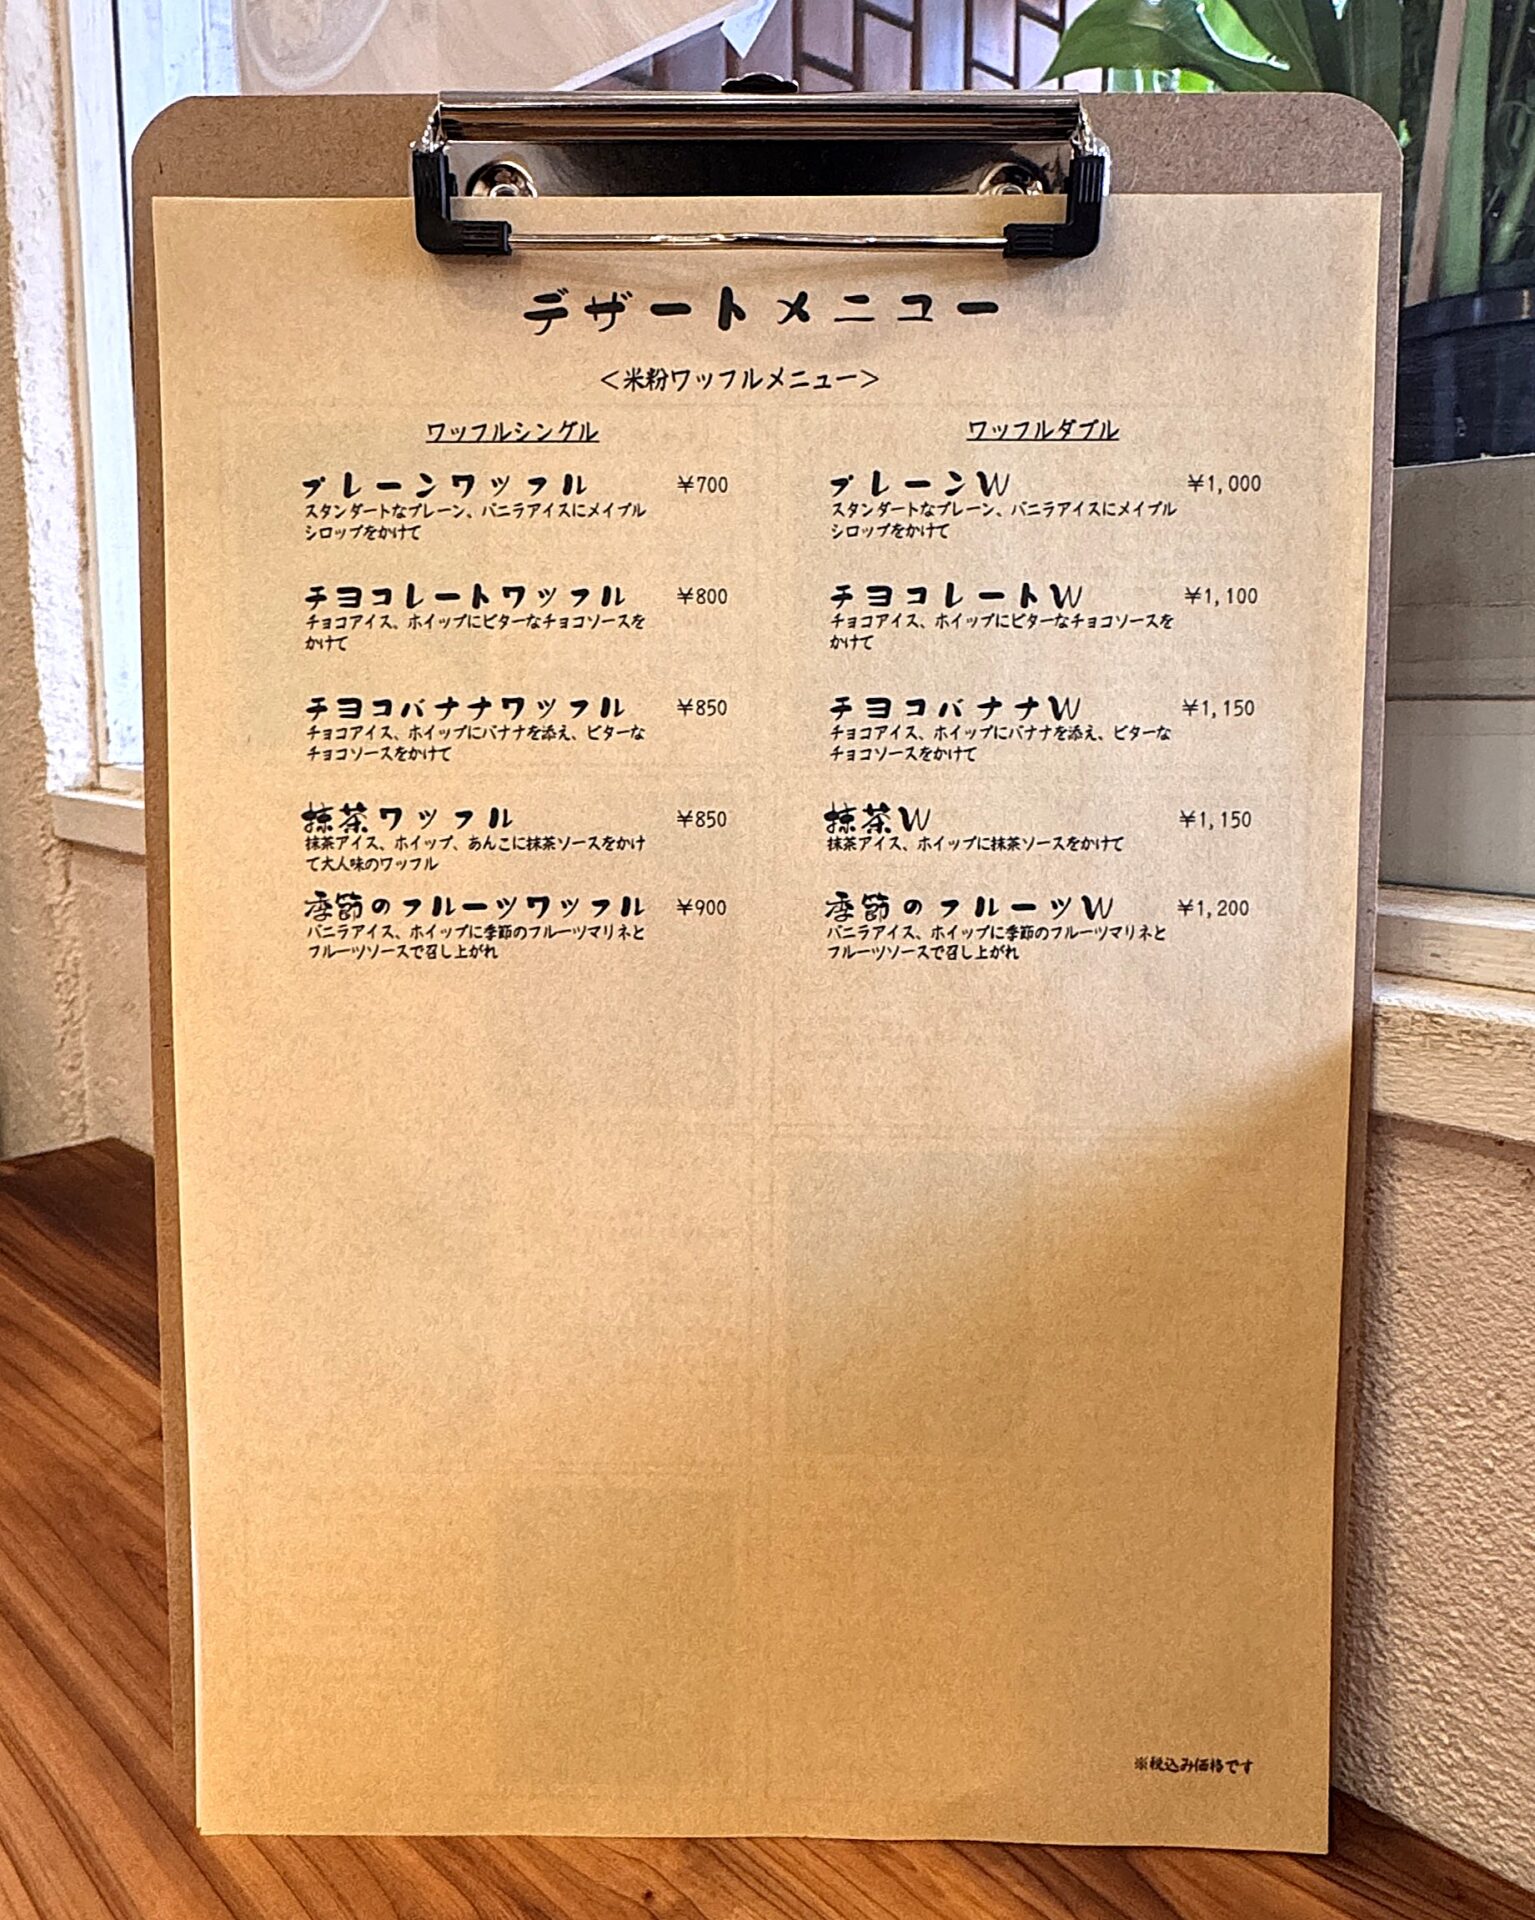 デザートメニュー
＜米粉ワッフルメニュー＞
ワッフルシングル
プレーンワッフル ￥700
スタンダートなプレーン、バニラアイスにメイプル
シロップをかけて
チヨコレートワッフル ￥800
チョコアイス、ホイップにビターなチョコソースを
かけて
チヨコバナナワッフル ￥850
チョコアイス、ホイップにバナナを添え、ビターな
チョコソースをかけて
抹茶ワッフル ￥850
抹茶アイス、ホイップ、あんこに抹茶ソースをかけ
て大人味のワッフル
季節のフルーツワッフル ￥900
バニラアイス、ホイップに季節のフルーツマリネと
フルーツソースで召し上がれ
ワッフルダブル
プレーンW ￥1,000
スタンダートなプレーン、バニラアイスにメイプル
シロップをかけて
チヨコレートW ￥1,100
チョコアイス、ホイップにビターなチョコソースを
かけて
チヨコバナナW ￥1,150
チョコアイス、ホイップにバナナを添え、ビターな
チョコソースをかけて
抹茶W ￥1,150
抹茶アイス、ホイップに抹茶ソースをかけて
季節のフルーツW ￥1,200
バニラアイス、ホイップに季節のフルーツマリネと
フルーツソースで召し上がれ
※税込み価格です